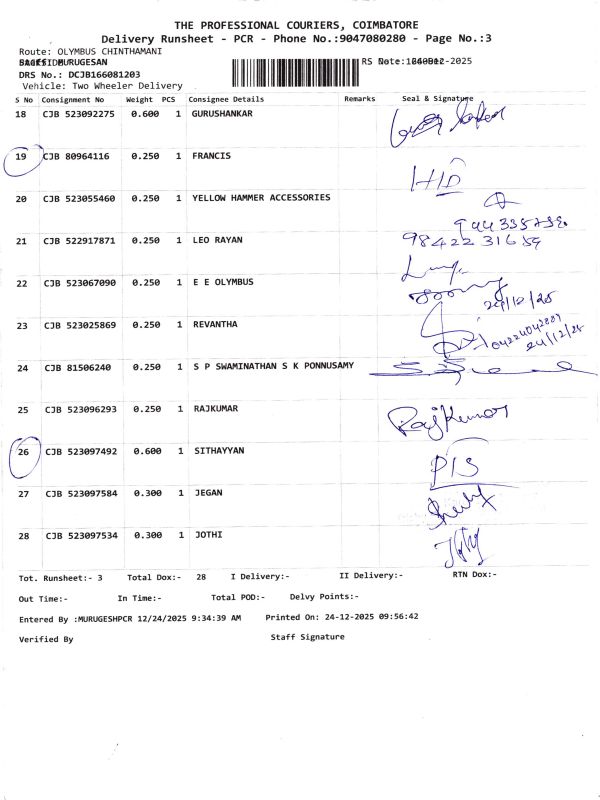 THE PROFESSIONAL COURIERS, COIMBATORE
Delivery Runsheet - PCR - Phone No.:9047080280 - Page No.:3
Route: OLYMBUS CHINTHAMANI
DRS No.: DCJB166081203
Vehicle: Two Wheeler Delivery
S No Consignment No Weight PCS Consignee Details Remarks Seal & Signature
18 CJB 523092275 0.600 1 GURUSHANKAR
19 CJB 80964116 0.250 1 FRANCIS HID
20 CJB 523055460 0.250 1 YELLOW HAMMER ACCESSORIES
21 CJB 522917871 0.250 1 LEO RAYAN 98422 31659
22 CJB 523067090 0.250 1 E E OLYMBUS 24/12/25
23 CJB 523025869 0.250 1 REVANTHA 24/12/25
24 CJB 81506240 0.250 1 S P SWAMINATHAN S K PONNUSAMY
25 CJB 523096293 0.250 1 RAJKUMAR RajKumar
26 CJB 523097492 0.600 1 SITHAYYAN PIS
27 CJB 523097584 0.300 1 JEGAN
28 CJB 523097534 0.300 1 JOTHI
Tot. Runsheet:- 3 Total Dox:- 28 I Delivery:- II Delivery:- RTN Dox:-
Out Time:- In Time:- Total POD:- Delvy Points:-
Entered By :MURUGESHPCR 12/24/2025 9:34:39 AM Printed On: 24-12-2025 09:56:42
Verified By Staff Signature